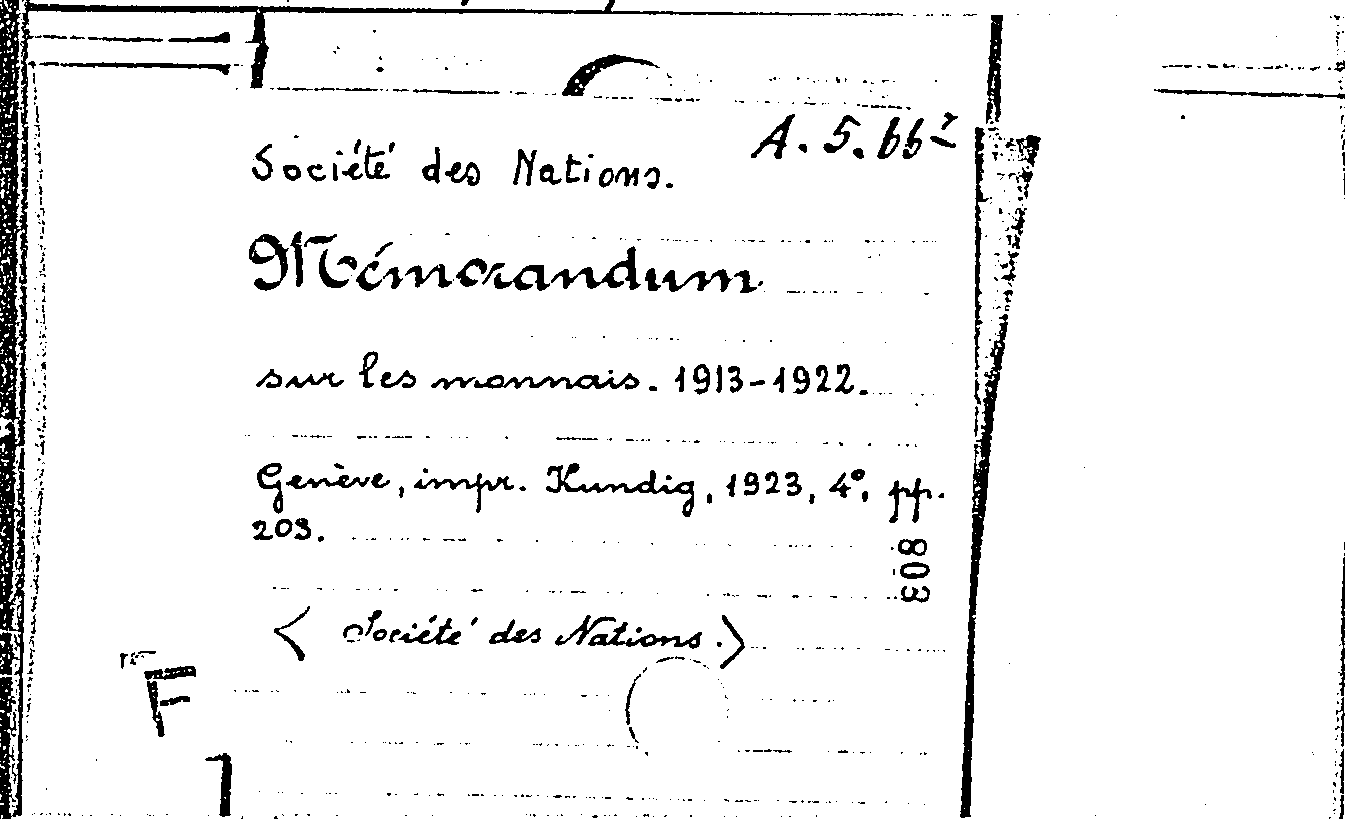 A. 5. bb²
Société des Nations.
Mémorandum
sur les monnais. 1913-1922.
Genève, impr. Kundig, 1923, 4°, pp.
203.
803
< Société des Nations. >
F